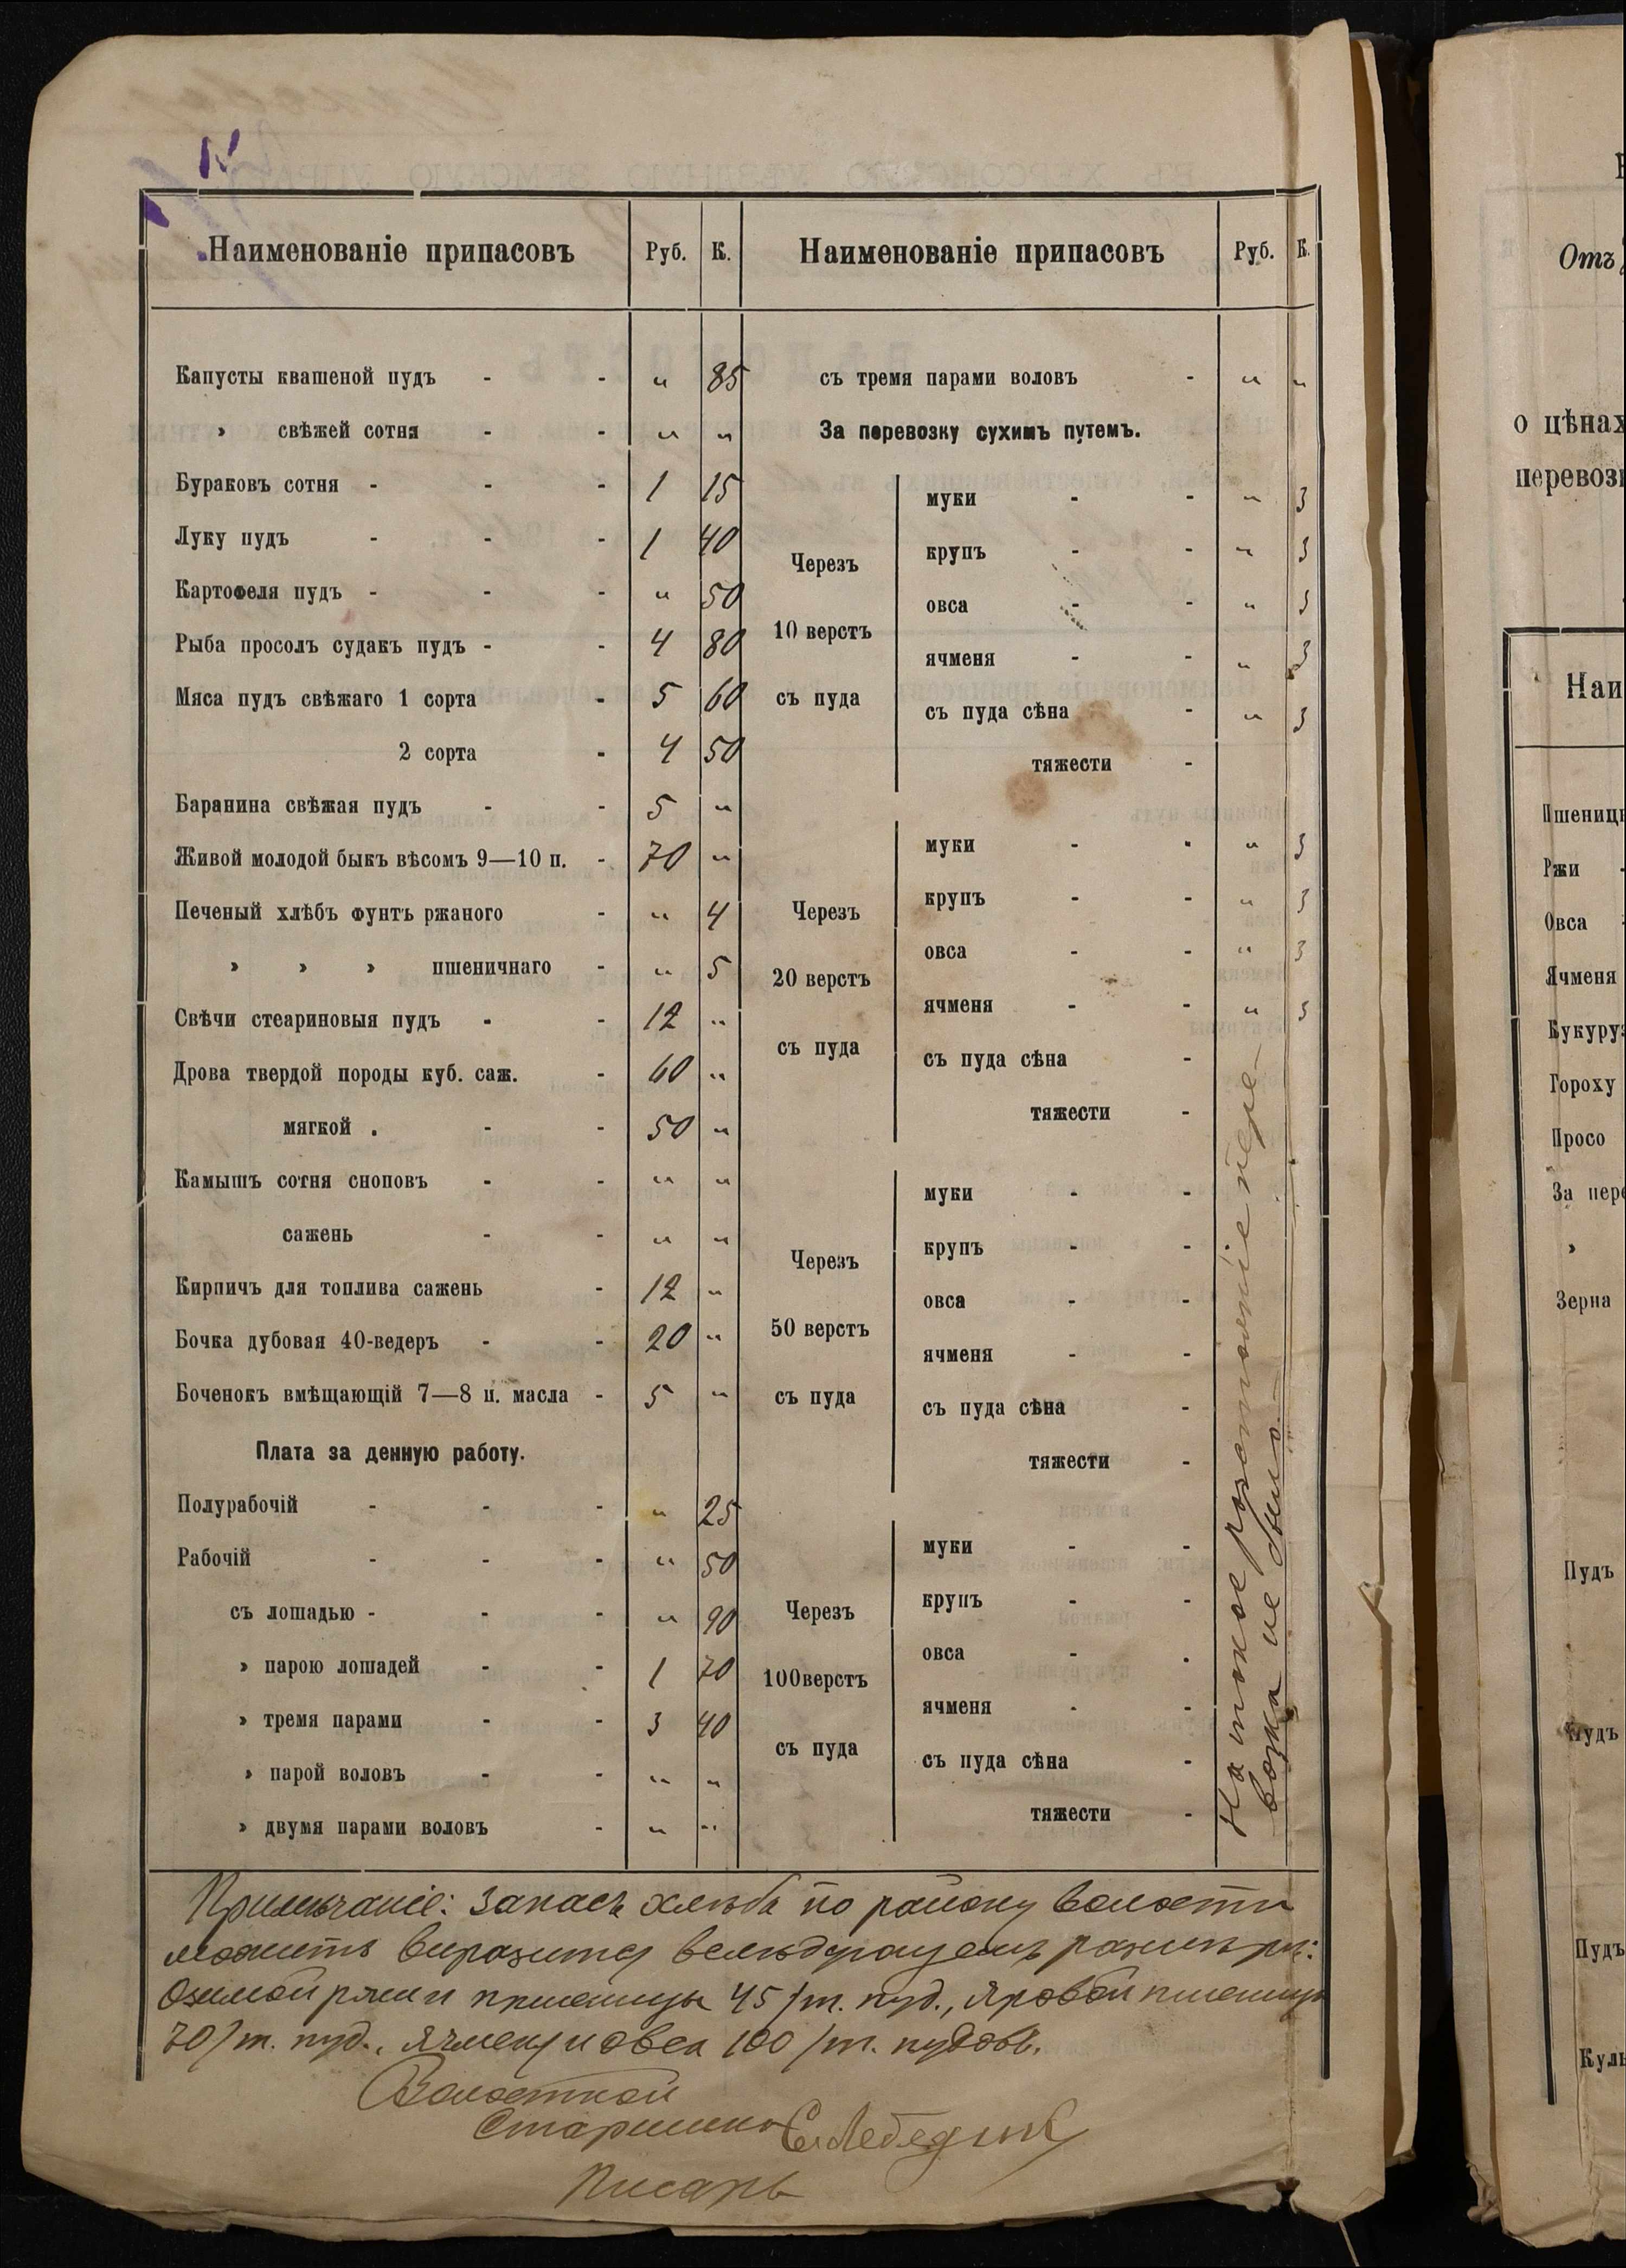 Наименованіе припасовъ Руб. К.
Капусты квашеной пудъ - - „ 85
» свѣжей сотня - - „ „
Бураковъ сотня - - - 1 15
Луку пудъ - - - 1 40
Картофеля пудъ - - - „ 50
Рыба просолъ судакъ пудъ - - 4 80
Мяса пудъ свѣжаго 1 сорта - 5 60
2 сорта - 4 50
Баранина свѣжая пудъ - - 5 „
Живой молодой быкъ вѣсомъ 9—10 п. - 70 „
Печеный хлѣбъ фунтъ ржаного - „ 4
» » » пшеничнаго - „ 5
Свѣчи стеариновыя пудъ - - 12 „
Дрова твердой породы куб. саж. - 60 „
мягкой . - - 50 „
Камышъ сотня сноповъ - - „ „
сажень - - „ „
Кирпичъ для топлива сажень - 12 „
Бочка дубовая 40-ведеръ - - 20 „
Боченокъ вмѣщающій 7—8 п. масла - 5 „
Плата за денную работу.
Полурабочій - - - „ 25
Рабочій - - - „ 50
съ лошадью - - - „ 90
» парою лошадей - - 1 70
» тремя парами - - 3 40
» парой воловъ - - „ „
» двумя парами воловъ - „ „
Наименованіе припасовъ Руб. К.
съ тремя парами воловъ - „ „
За перевозку сухимъ путемъ.
Черезъ
10 верстъ
съ пуда
муки - - „ 3
крупъ - - „ 3
овса - - „ 3
ячменя - - „ 3
съ пуда сѣна - „ 3
тяжести -
Черезъ
20 верстъ
съ пуда
муки - - „ 3
крупъ - - „ 3
овса - - „ 3
ячменя - - „ 3
съ пуда сѣна -
тяжести -
Черезъ
50 верстъ
съ пуда
муки - -
крупъ - -
овса - -
ячменя - -
съ пуда сѣна -
тяжести -
Черезъ
100верстъ
съ пуда
муки - -
крупъ - -
овса - -
ячменя - -
съ пуда сѣна -
тяжести -
На такое разстояніе пере-
возка не была.
Примѣчаніе: Запасъ хлѣба по району волости
можетъ виразится вслѣдующемъ размѣрѣ:
Озимой ржи и пшеницы 45/т. пуд., яровой пшеницы
70/т. пуд., ячменя и овса 100/т. пудовъ.
Волостной
Старшина
Писарь
Отъ
о цѣнах
перевоз
Наи
Пшениц
Ржи -
Овса
Ячменя
Кукуруз
Гороху
Просо
За пере
»
Зерна
Пудъ
Пудъ
Пудъ
Куль